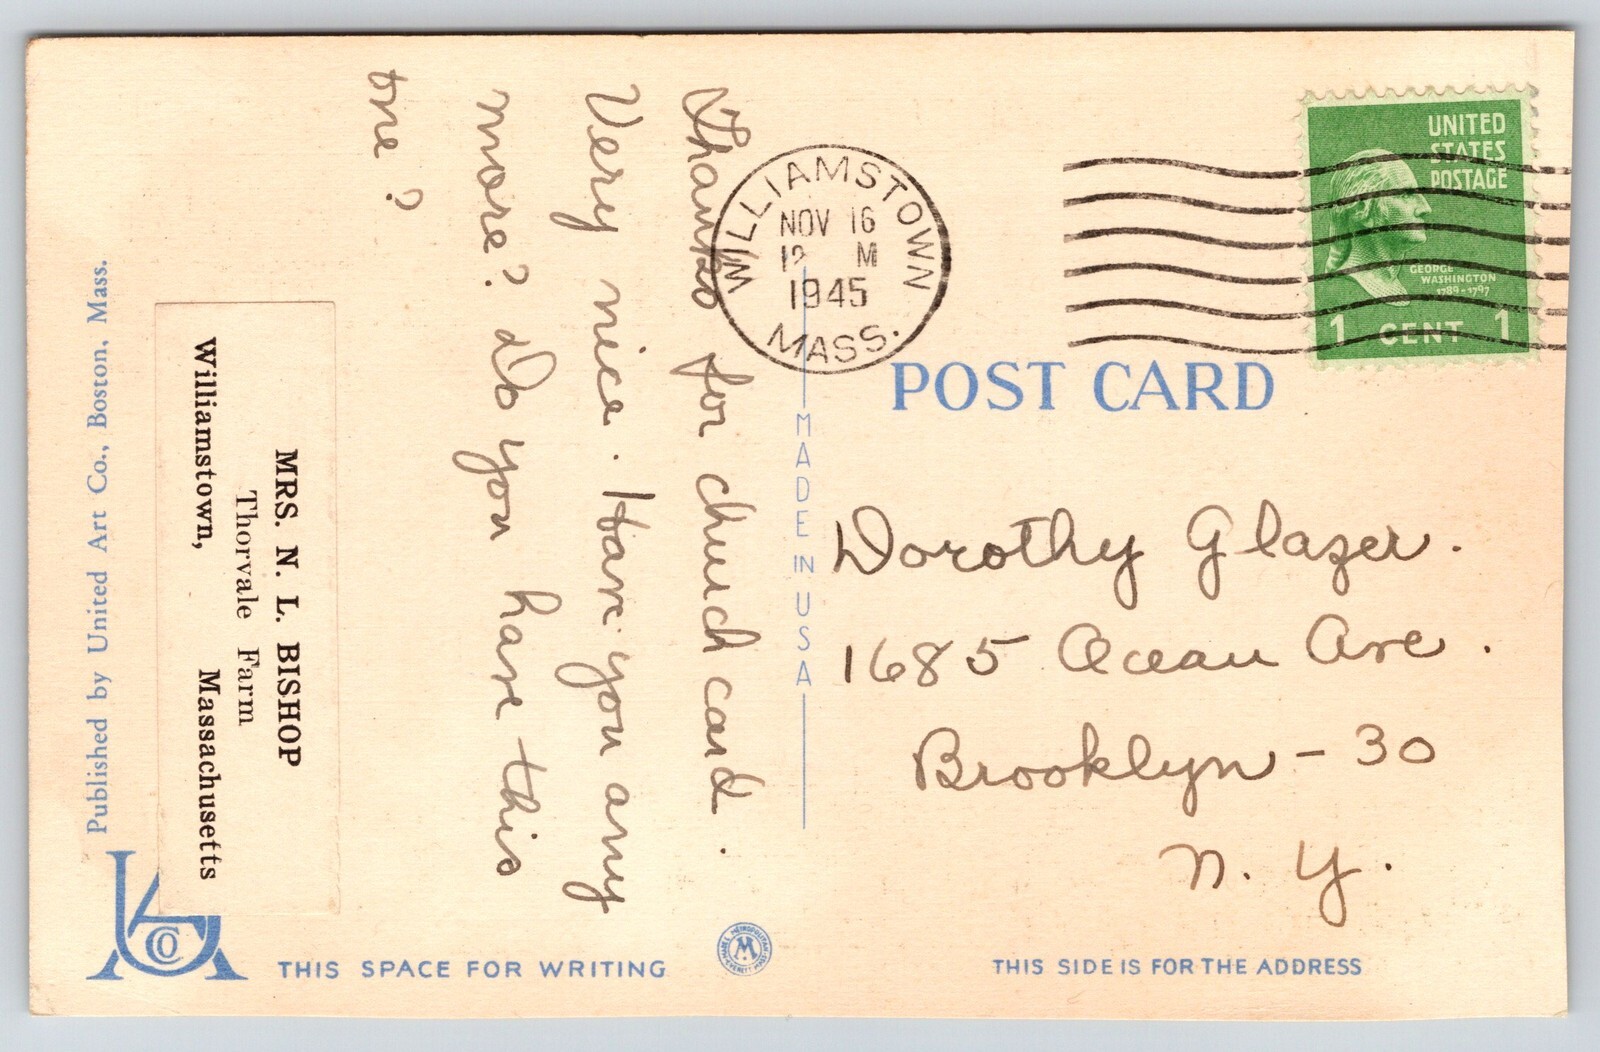 Thanks for church card.
Very nice. Have you any
more? do you have this
one?
MRS. N. L. BISHOP
Thorvale Farm
Williamstown, Massachusetts
Published by United Art Co., Boston, Mass.
UA CO
THIS SPACE FOR WRITING
METROPOLITAN
M
EVERETT MASS
WILLIAMSTOWN
NOV 16
12 M
1945
MASS.
UNITED
STATES
POSTAGE
GEORGE
WASHINGTON
1789-1797
1 CENT 1
POST CARD
MADE IN USA
Dorothy Glazer.
1685 Ocean Ave.
Brooklyn - 30
N. Y.
THIS SIDE IS FOR THE ADDRESS